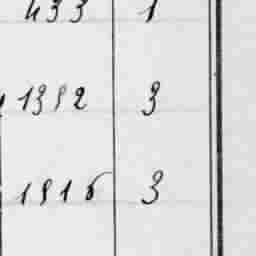 433 1
1392 3
1916 3